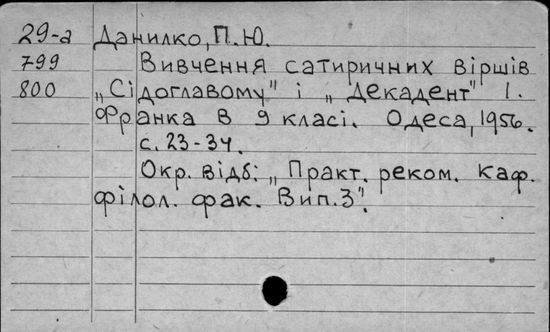 29-а Данилко, П.Ю.
799 Вивчення сатиричних віршів
800 „Сідоглавому" і „Декадент" І.
Франка в 9 класі. Одеса, 1956.
с. 23-34.
Окр. відб: „Практ. реком. каф.
філол. фак. Вип.3".